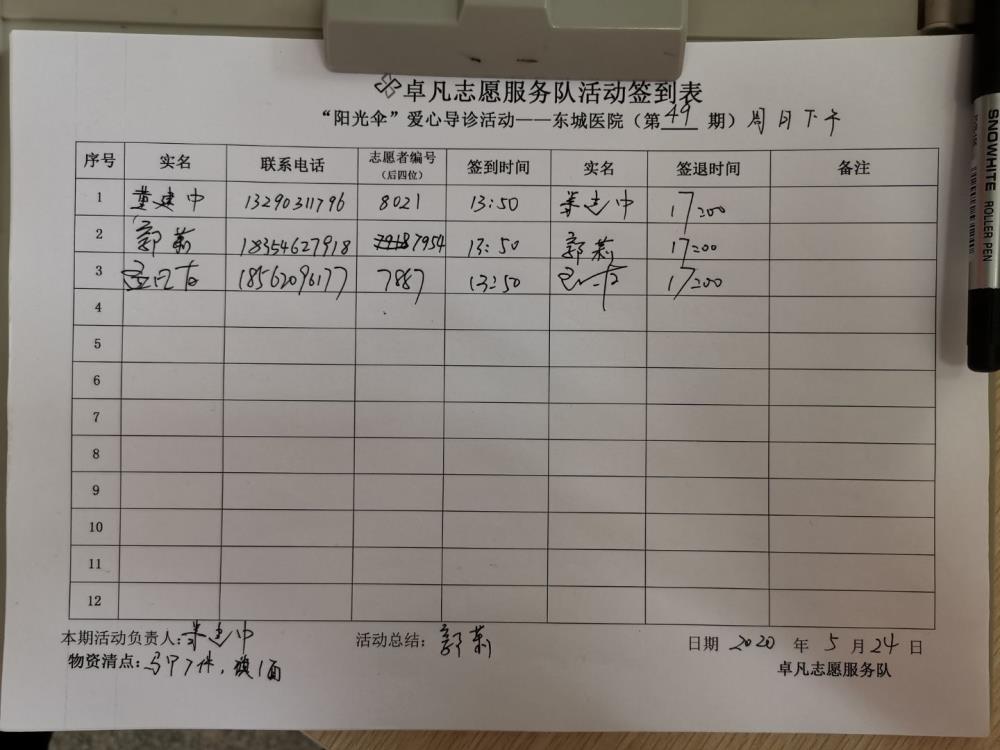 卓凡志愿服务队活动签到表
“阳光伞”爱心导诊活动——东城医院（第49期）周日下午
序号 实名 联系电话 志愿者编号（后四位） 签到时间 实名 签退时间 备注
1 建中 13290311796 8021 13:50 建中 17:00
2 郭莉 18354627918 7954 13:50 郭莉 17:00
3 18562096177 7887 13:50 17:00
4
5
6
7
8
9
10
11
12
本期活动负责人：建中 活动总结：郭莉 日期 2020 年 5 月 24 日
物资清点：马甲7件，旗1面
卓凡志愿服务队
SNOWHITE ROLLER PEN